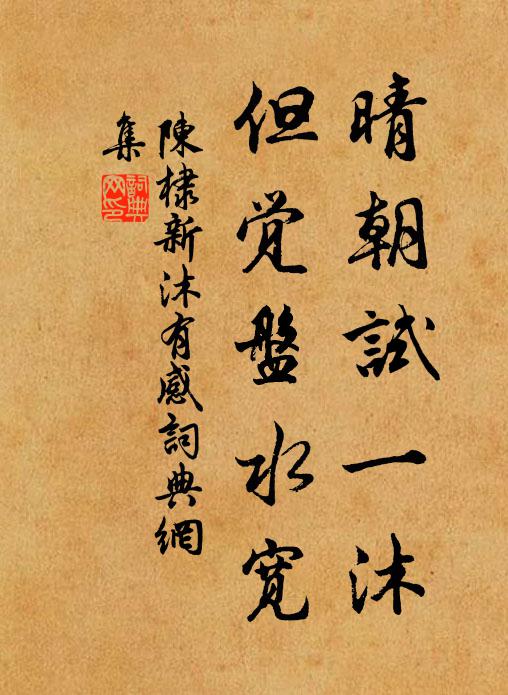 晴朝試一沐
但觉盤水寬
陳棣新沐有感詞典網
集
詞典
网印